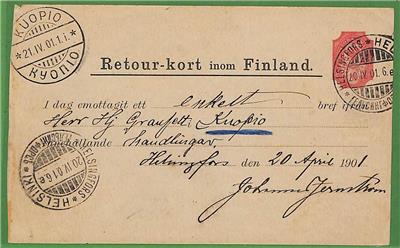 KUOPIO
21.IV.01.1.i.
КУОПІО
Retour-kort inom Finland.
HELSINGFORS HELSINKI
20.IV.01.6.e
I dag emottagit ett enkelt bref
Herr Hj Kuopio
innehållande handlingar,
Helsingfors den 20 April 1901
Johannes Jernström
HELSINGFORS HELSINKI
20.IV.01.6.e